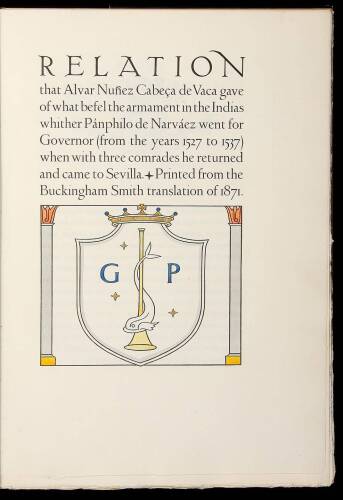 RELATION
that Alvar Nuñez Cabeça de Vaca gave
of what befel the armament in the Indias
whither Pánphilo de Narváez went for
Governor (from the years 1527 to 1537)
when with three comrades he returned
and came to Sevilla. ✦ Printed from the
Buckingham Smith translation of 1871.
G P